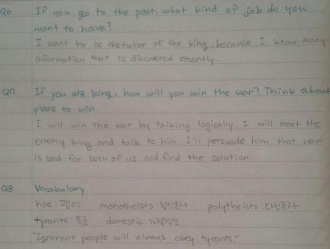 Q6 If you go to the past, what kind of job do you
want to have?
I want to be the tutor of the king, because I know many
information that is discovered recently.
Q7 If you are king, how will you win the war? Think about
plans to win.
I will win the war by talking logically. I will meet the
enemy king and talk to him. I'll persuade him that war
is bad for both of us and find the solution.
Q8 Vocabulary
hoe: 괭이 monotheists: 일신론자 polytheists: 다신론자
tyrants: 폭군 domestic:
"Ignorant people will always obey tyrants."